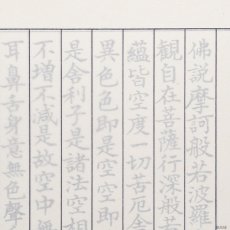 佛説摩訶般若波羅
觀自在菩薩行深般若
蘊皆空度一切苦厄舍
異色色即是空空即
是舍利子是諸法空相
不增不減是故空中無
耳鼻舌身意無色聲